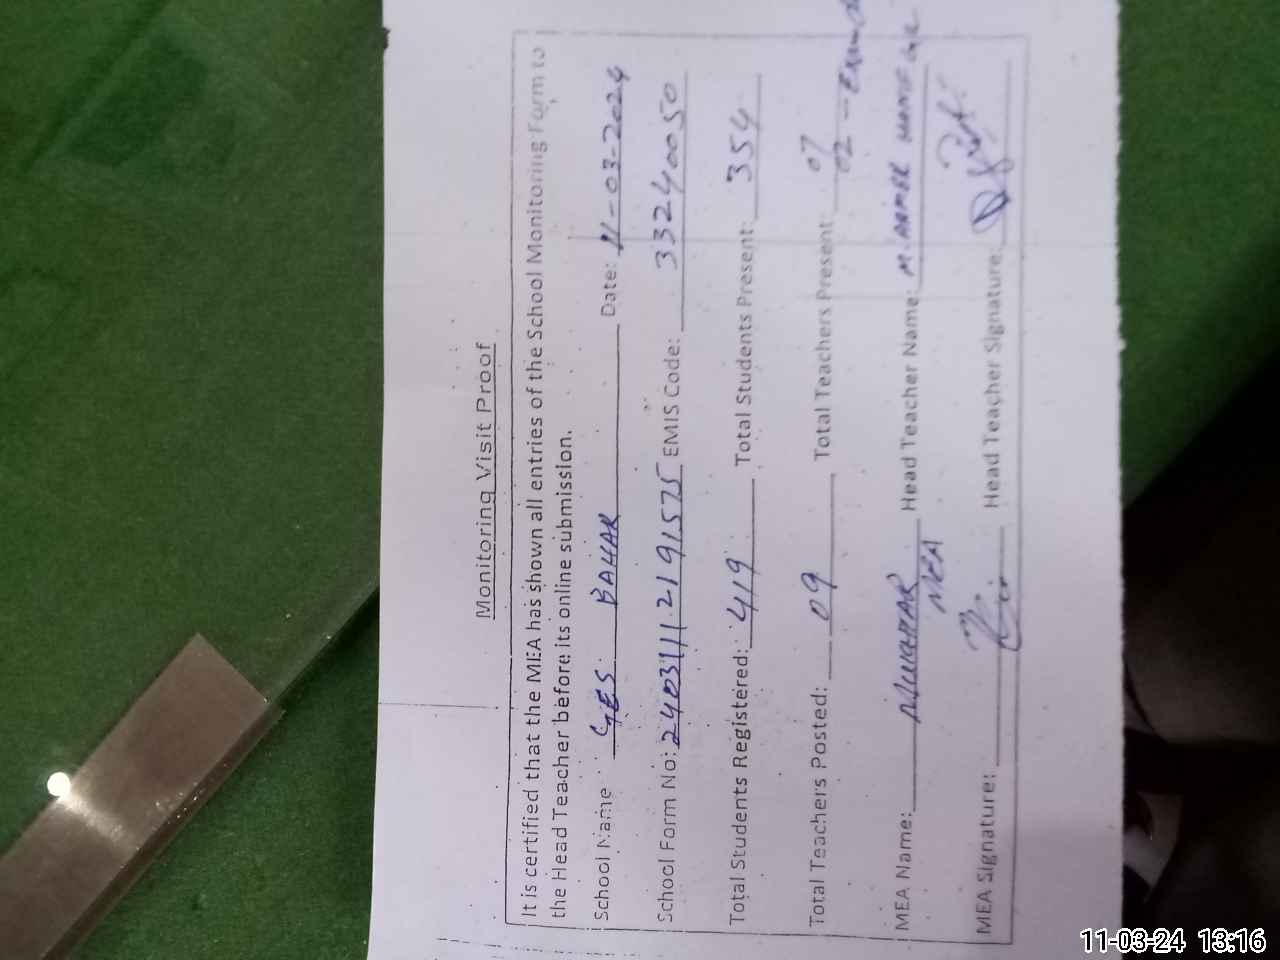 Monitoring Visit Proof
It is certified that the MEA has shown all entries of the School Monitoring Form to
the Head Teacher before its online submission.
School Name GES BAHAR Date: 11-03-2024
School Form No: 24031112191575 EMIS Code: 33240050
Total Students Registered: 419 Total Students Present: 354
07
Total Teachers Posted: 09 Total Teachers Present: 02 - Exam
MEA Name: Head Teacher Name: M.
MEA
MEA Signature: Head Teacher Signature:
11-03-24 13:16